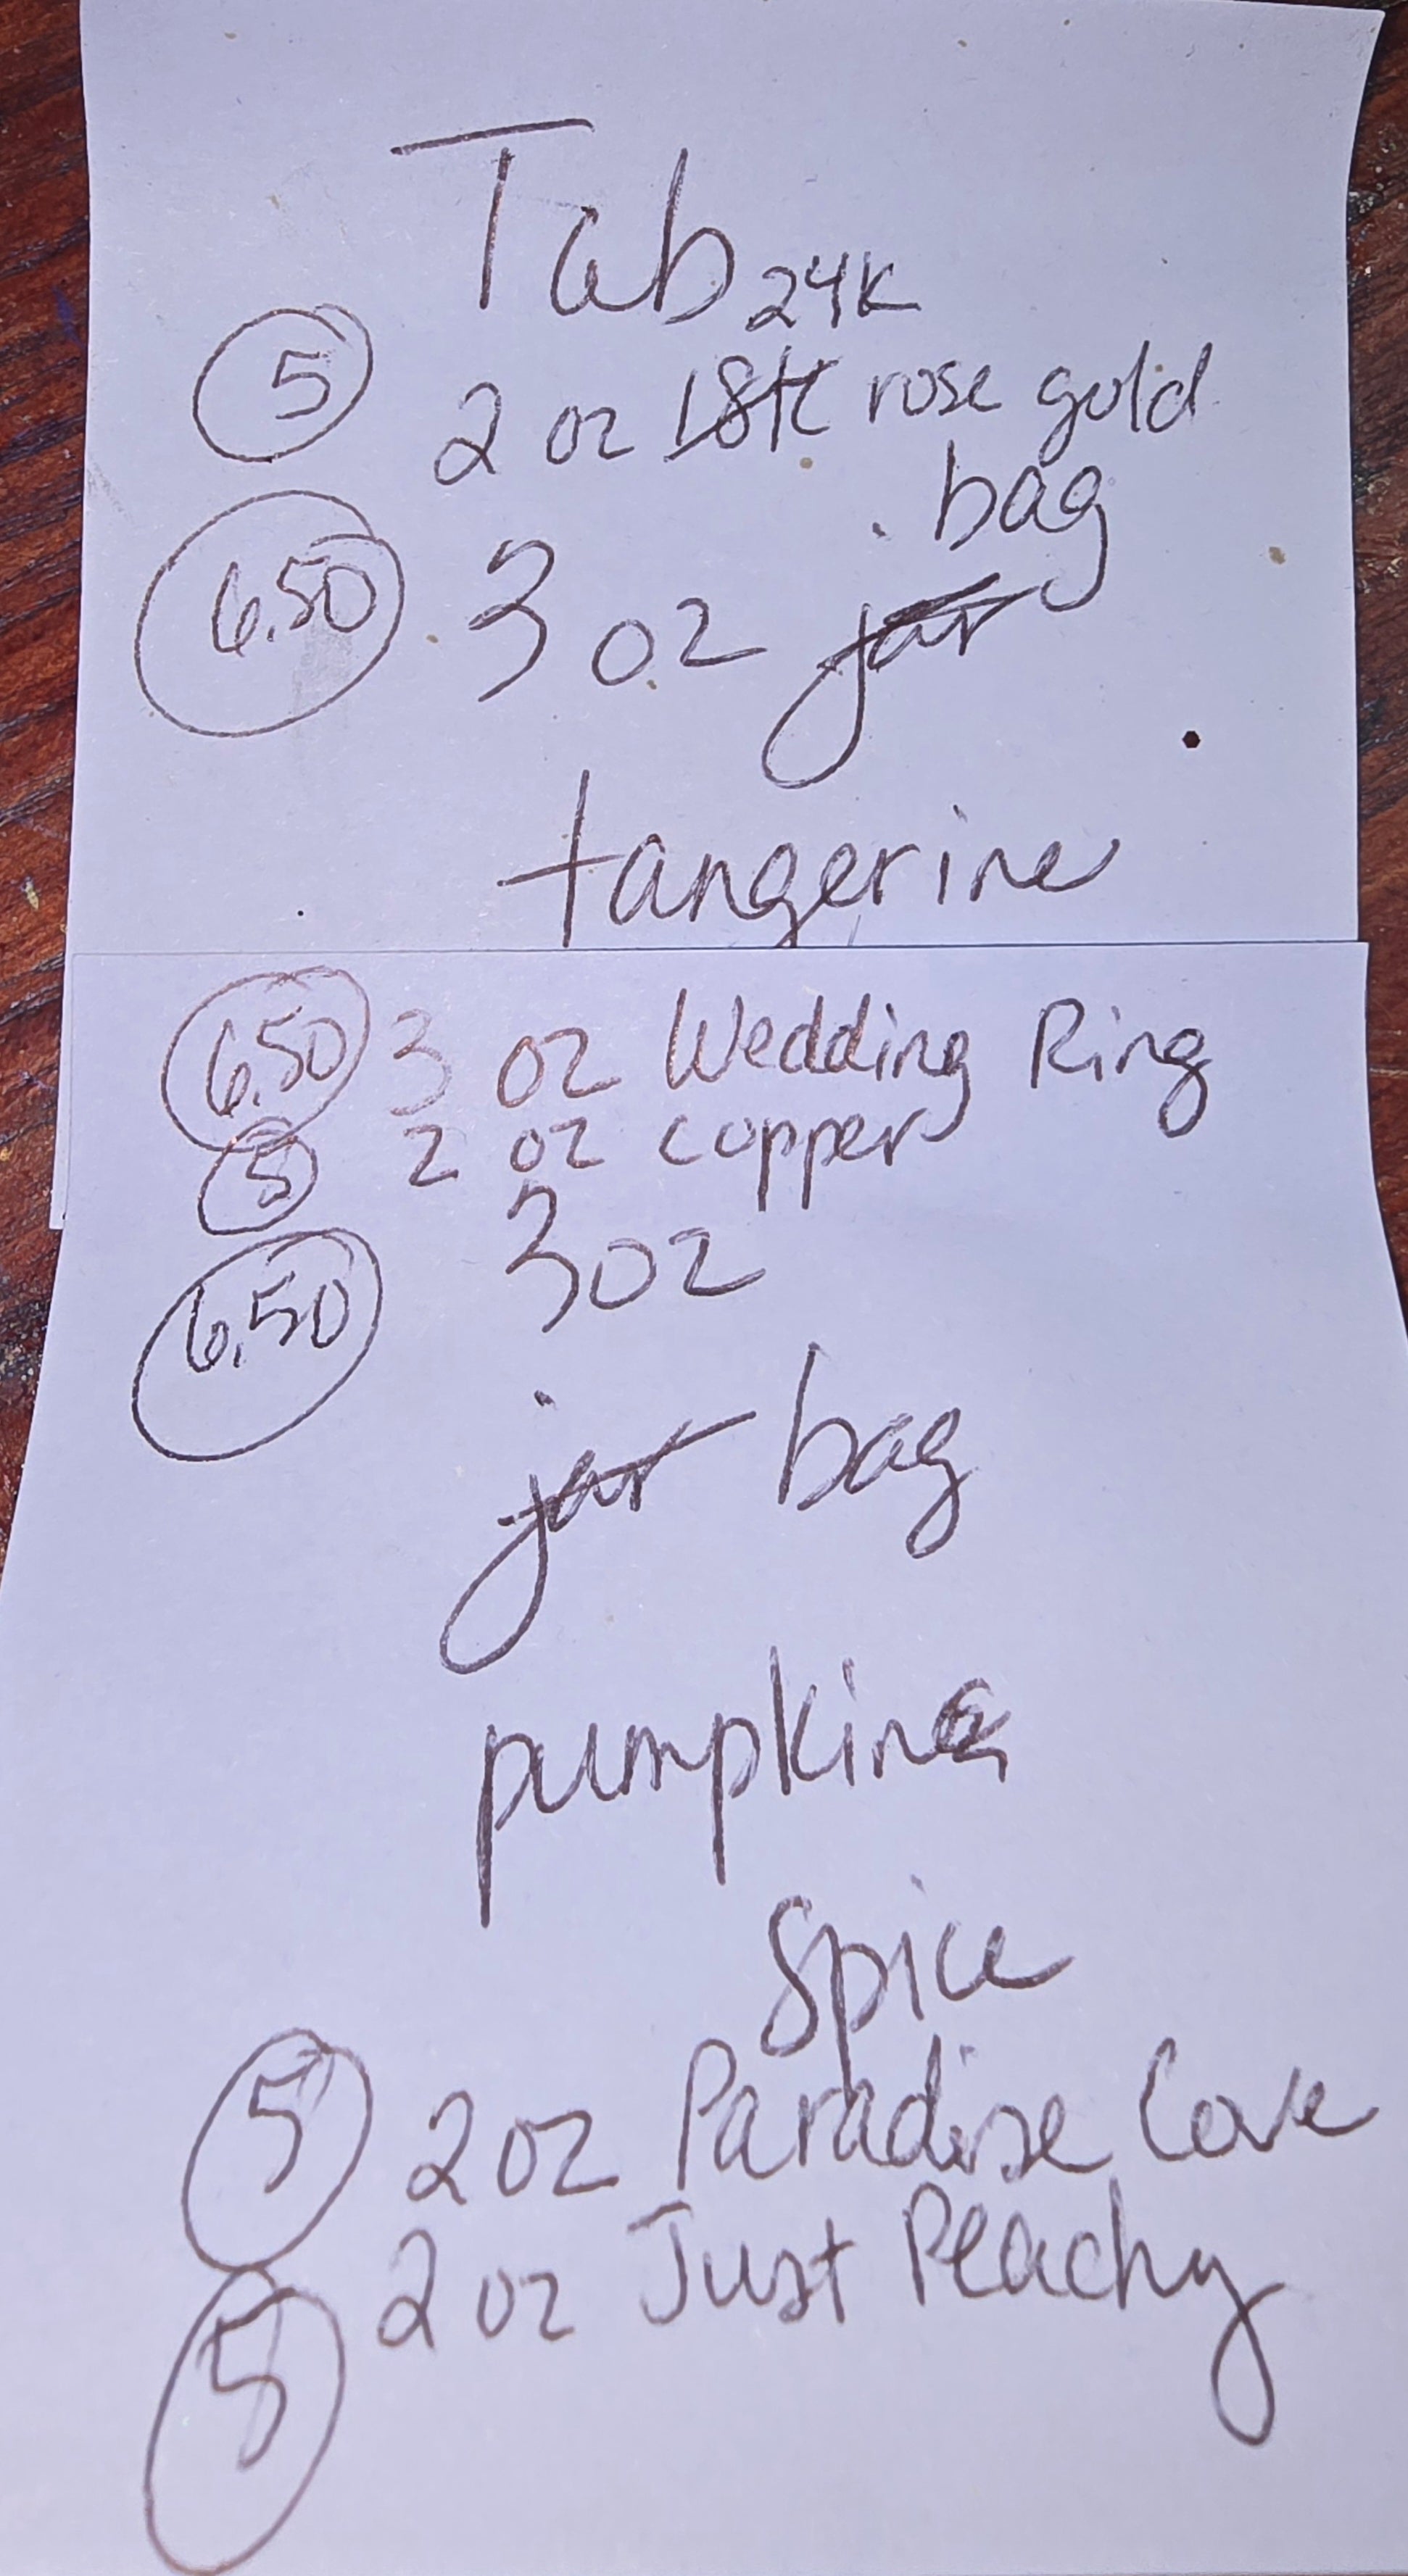 Tab
24K
5 2 oz 18K rose gold
bag
6.50 3 oz jar
tangerine
6.50 3 oz Wedding Ring
5 2 oz copper
6.50 3 oz
jar bag
pumpkin
Spice
5 2 oz Paradise Cove
5 2 oz Just Peachy